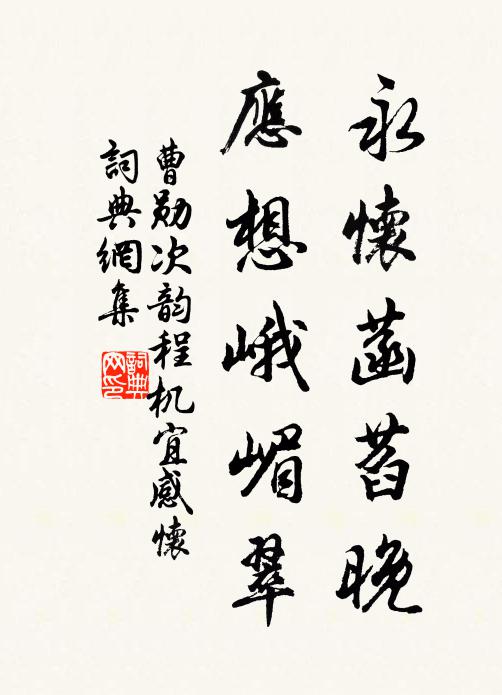 永懷菡萏晚
應想峨嵋翠
曹勋次韵程机宜感懷
詞典網集
詞典网印